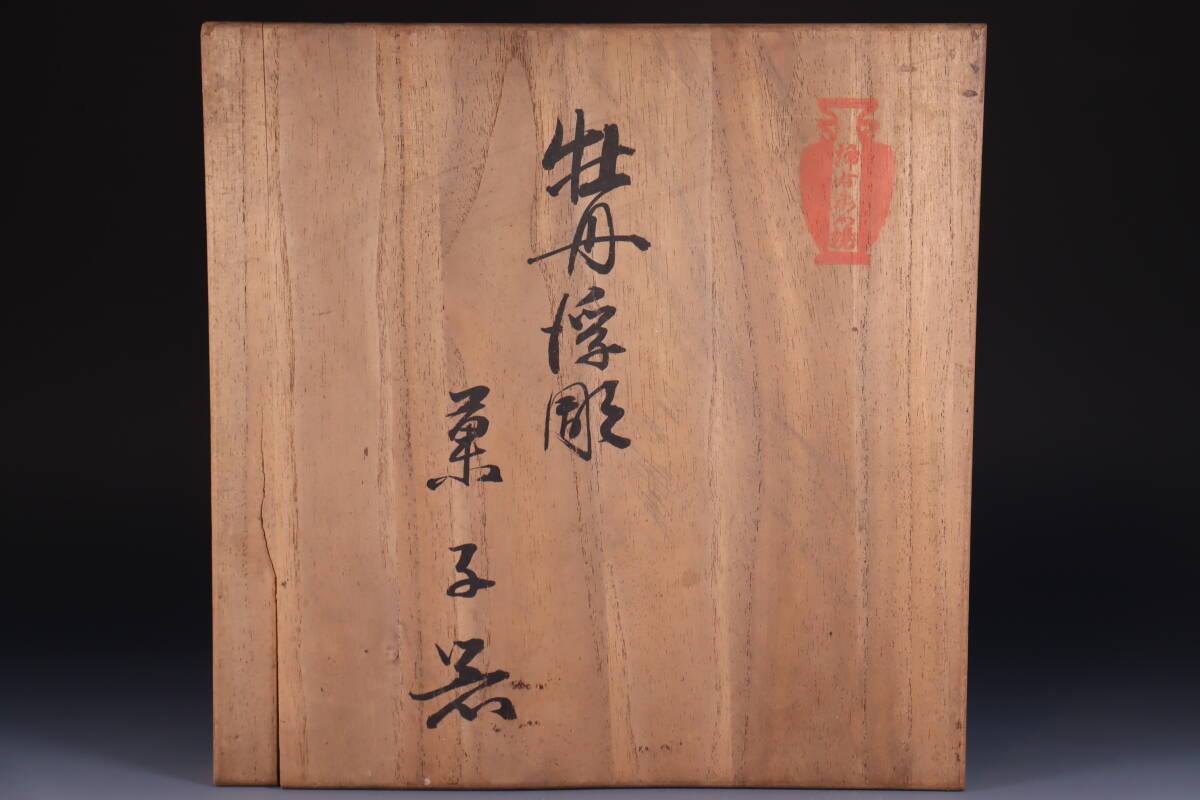 牡丹浮彫
菓子器